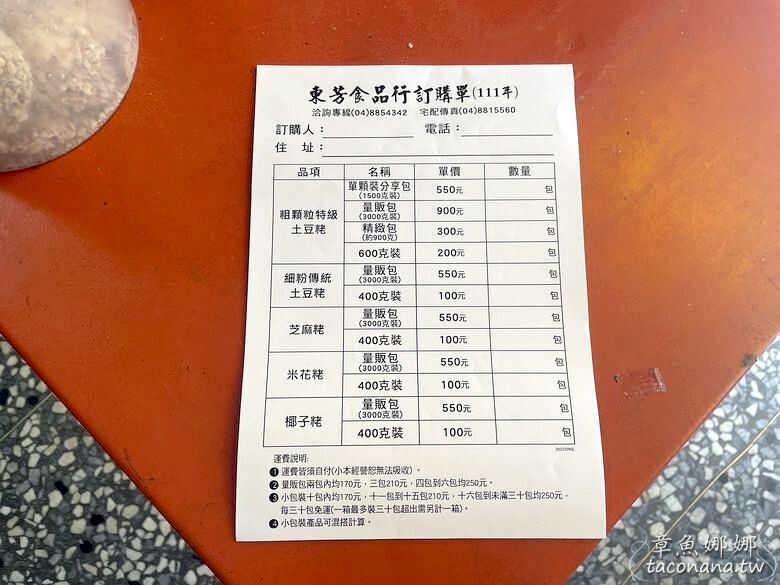 東芳食品行訂購單(111年)
洽詢專線(04)8854342 宅配傳真(04)8815560
訂購人： 電話：
住 址：
品項 名稱 單價 數量
粗顆粒特級土豆粩 單顆裝分享包(1500克裝) 550元 包
量販包(3000克裝) 900元 包
精緻包(約900克) 300元 包
600克裝 200元 包
細粉傳統土豆粩 量販包(3000克裝) 550元 包
400克裝 100元 包
芝麻粩 量販包(3000克裝) 550元 包
400克裝 100元 包
米花粩 量販包(3000克裝) 550元 包
400克裝 100元 包
椰子粩 量販包(3000克裝) 550元 包
400克裝 100元 包
運費說明:
❶ 運費皆須自付(小本經營恕無法吸收)。
❷ 量販包兩包內均170元，三包210元，四包到六包均250元。
❸ 小包裝十包內均170元，十一包到十五包210元，十六包到未滿三十包均250元，
每三十包免運(一箱最多裝三十包超出需另計一箱)。
❹ 小包裝產品可混搭計算。
章魚娜娜
taconana.tw